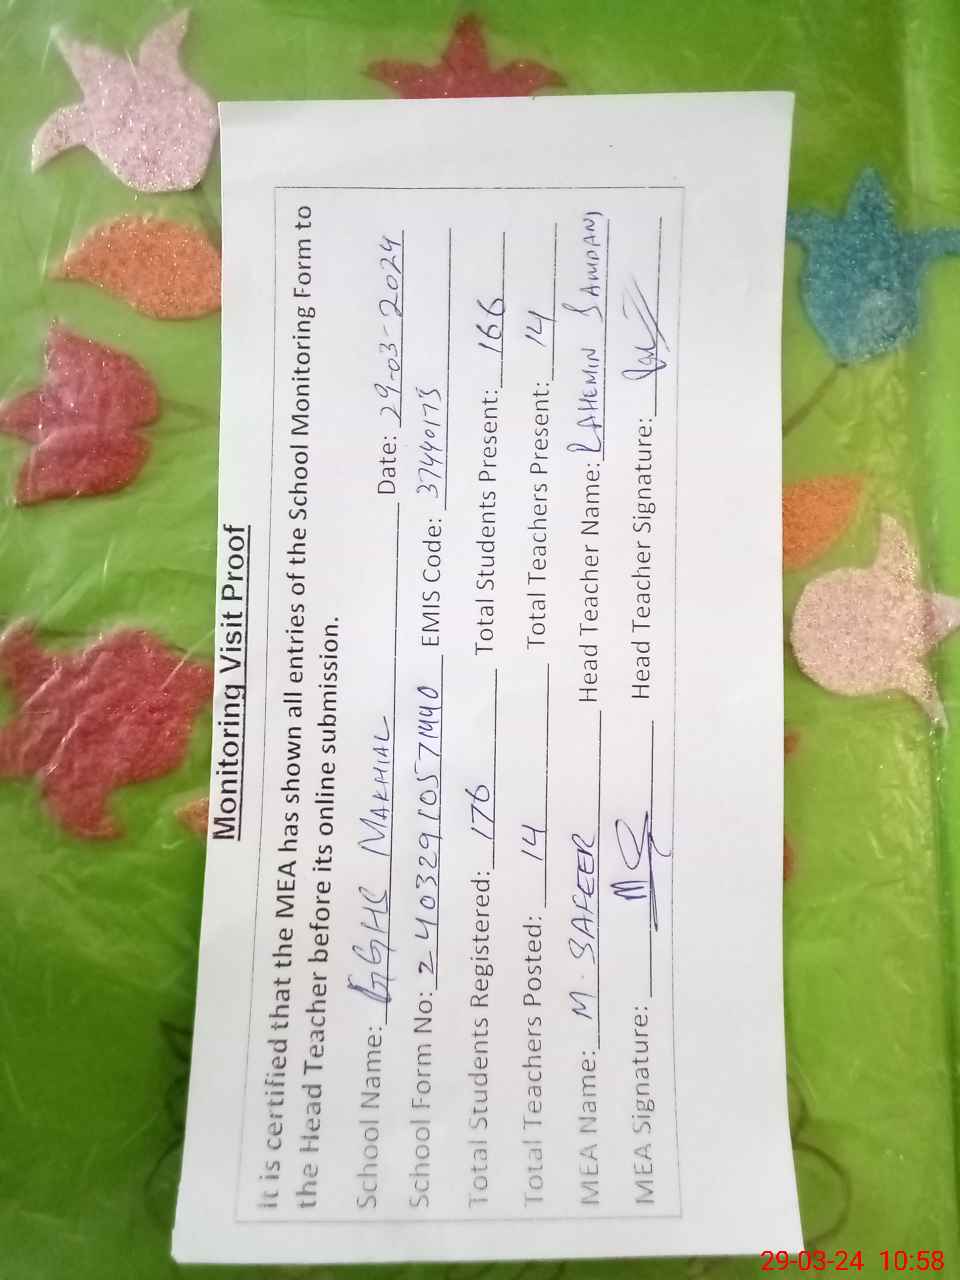 Monitoring Visit Proof
It is certified that the MEA has shown all entries of the School Monitoring Form to
the Head Teacher before its online submission.
School Name: GGHS MAKHIAL Date: 29-03-2024
School Form No: 24032910571440 EMIS Code: 37440173
Total Students Registered: 176 Total Students Present: 166
Total Teachers Posted: 14 Total Teachers Present: 14
MEA Name: M. SAFEER Head Teacher Name: RAHEMIN
MEA Signature: Head Teacher Signature:
29-03-24 10:58